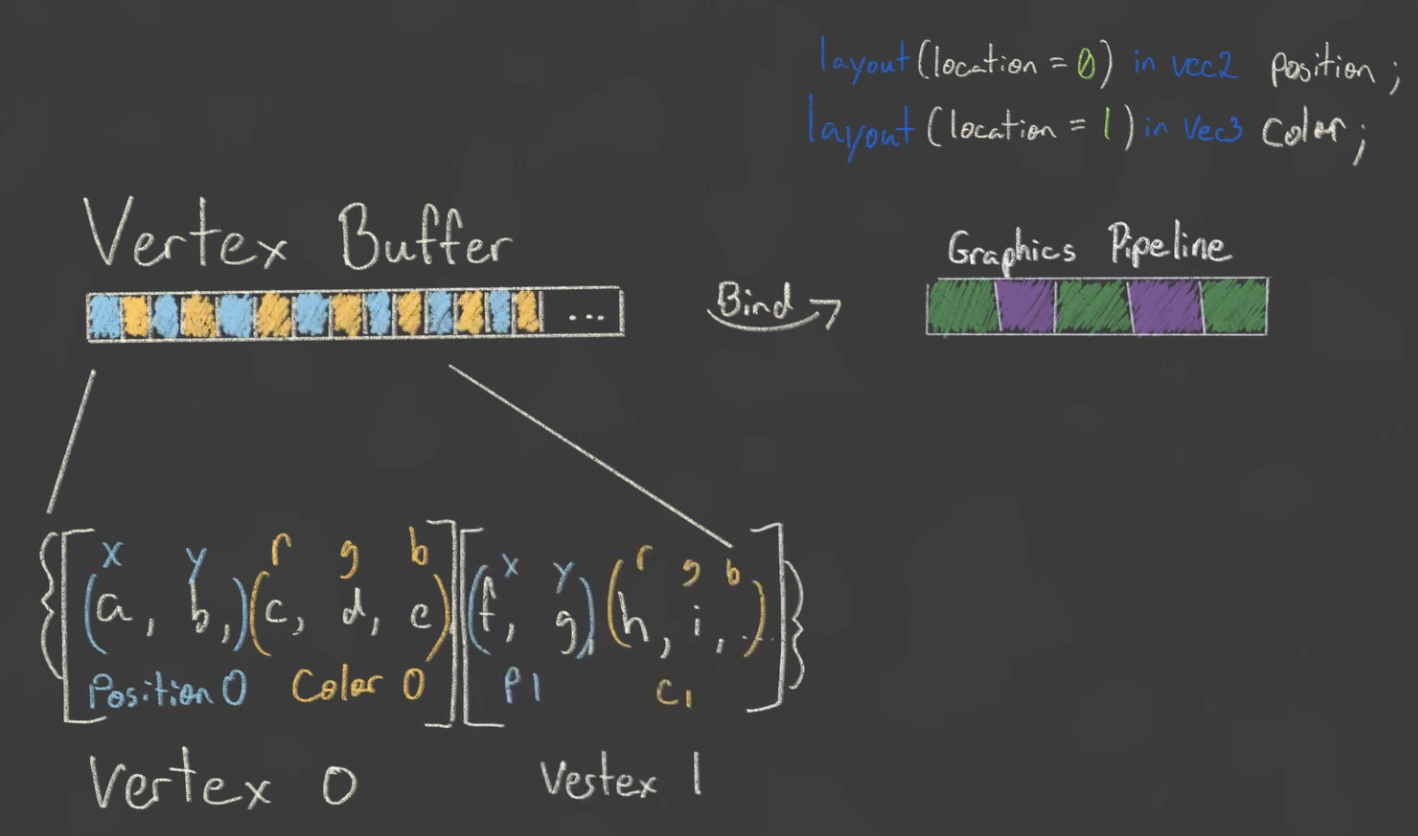 layout (location = 0) in vec2 position;
layout (location = 1) in vec3 color;
Vertex Buffer
Graphics Pipeline
...
Bind
x y r g b x y r g b
{[(a, b,)(c, d, e)][(f, g,)(h, i, ....)]}
Position 0 Color 0 P1 C1
Vertex 0 Vertex 1